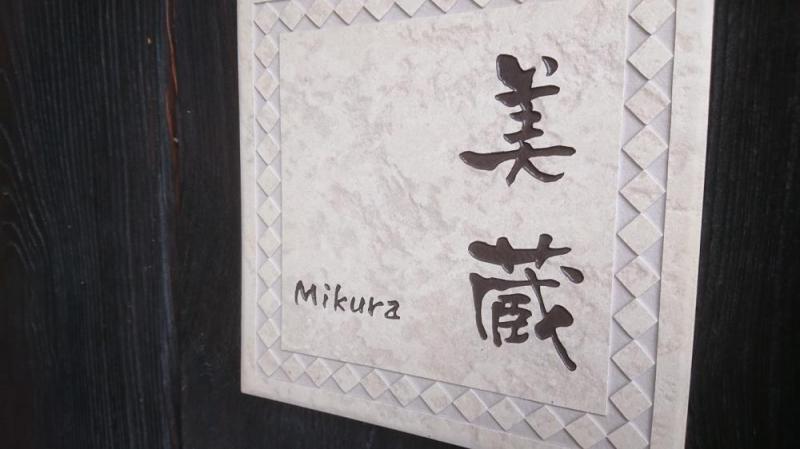 美蔵
Mikura